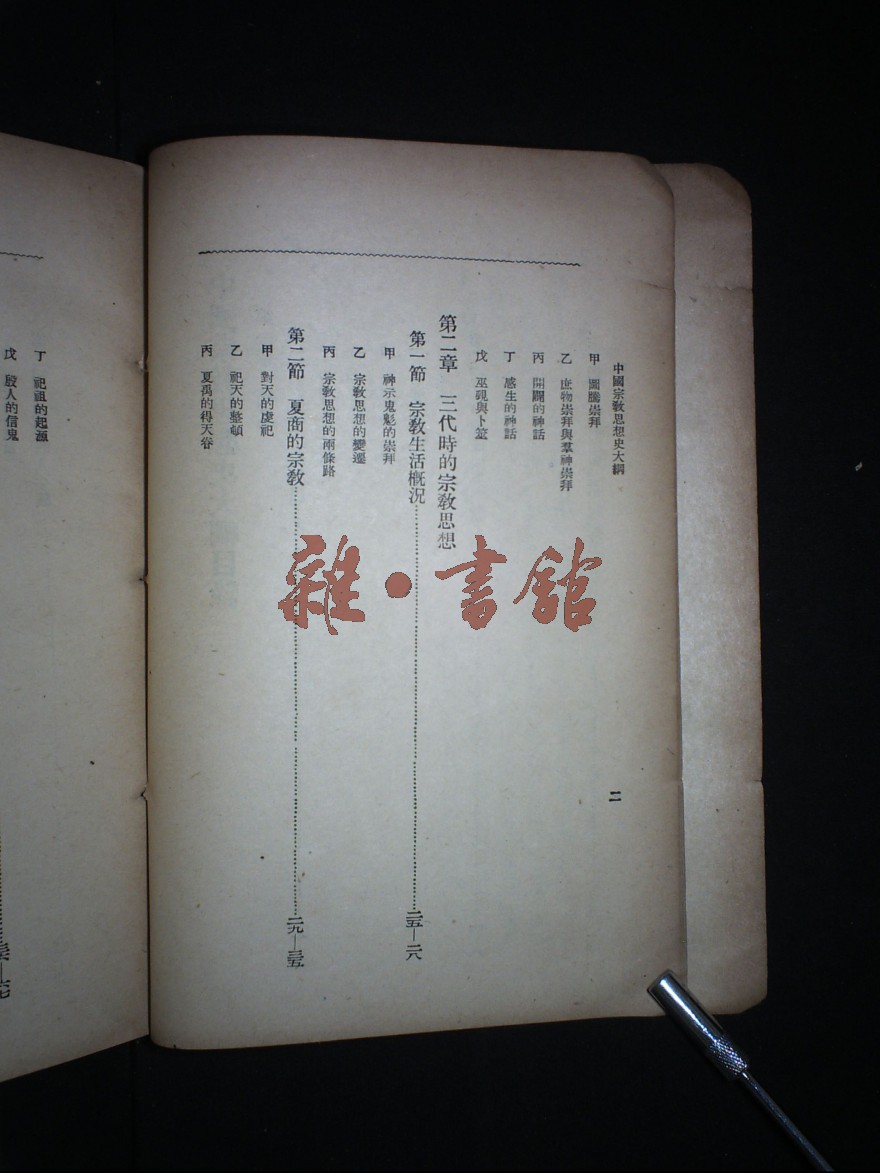 中國宗教思想史大綱
二
甲 圖騰崇拜
乙 庶物崇拜與羣神崇拜
丙 開闢的神話
丁 感生的神話
戊 巫覡與卜筮
第二章 三代時的宗教思想
第一節 宗教生活概況……二五—二八
甲 神示鬼魁的崇拜
乙 宗教思想的變遷
丙 宗教思想的兩條路
第二節 夏商的宗教……二九—三五
甲 對天的虔祀
乙 祀天的整頓
丙 夏禹的得天眷
丁 祀祖的起源
戊 殷人的信鬼
雜·書館